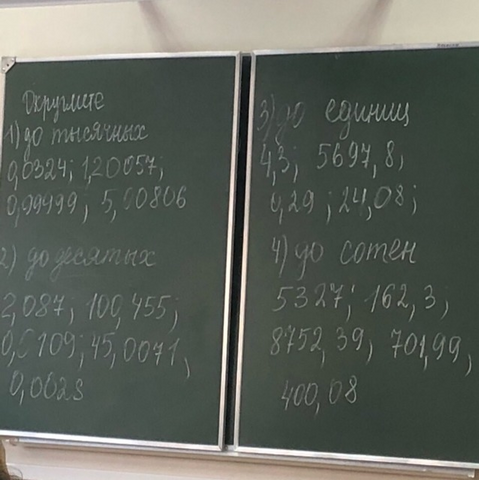 Округлите
1) до тысячных
0,0324; 1,20057;
0,99499; 5,60806
2) до десятых
2,087; 100,455;
0,0109; 45,0071,
0,0023
3) до единиц
4,3; 5697,8,
0,29; 24,08;
4) до сотен
5327; 162,3;
8752,39; 701,99,
400,08